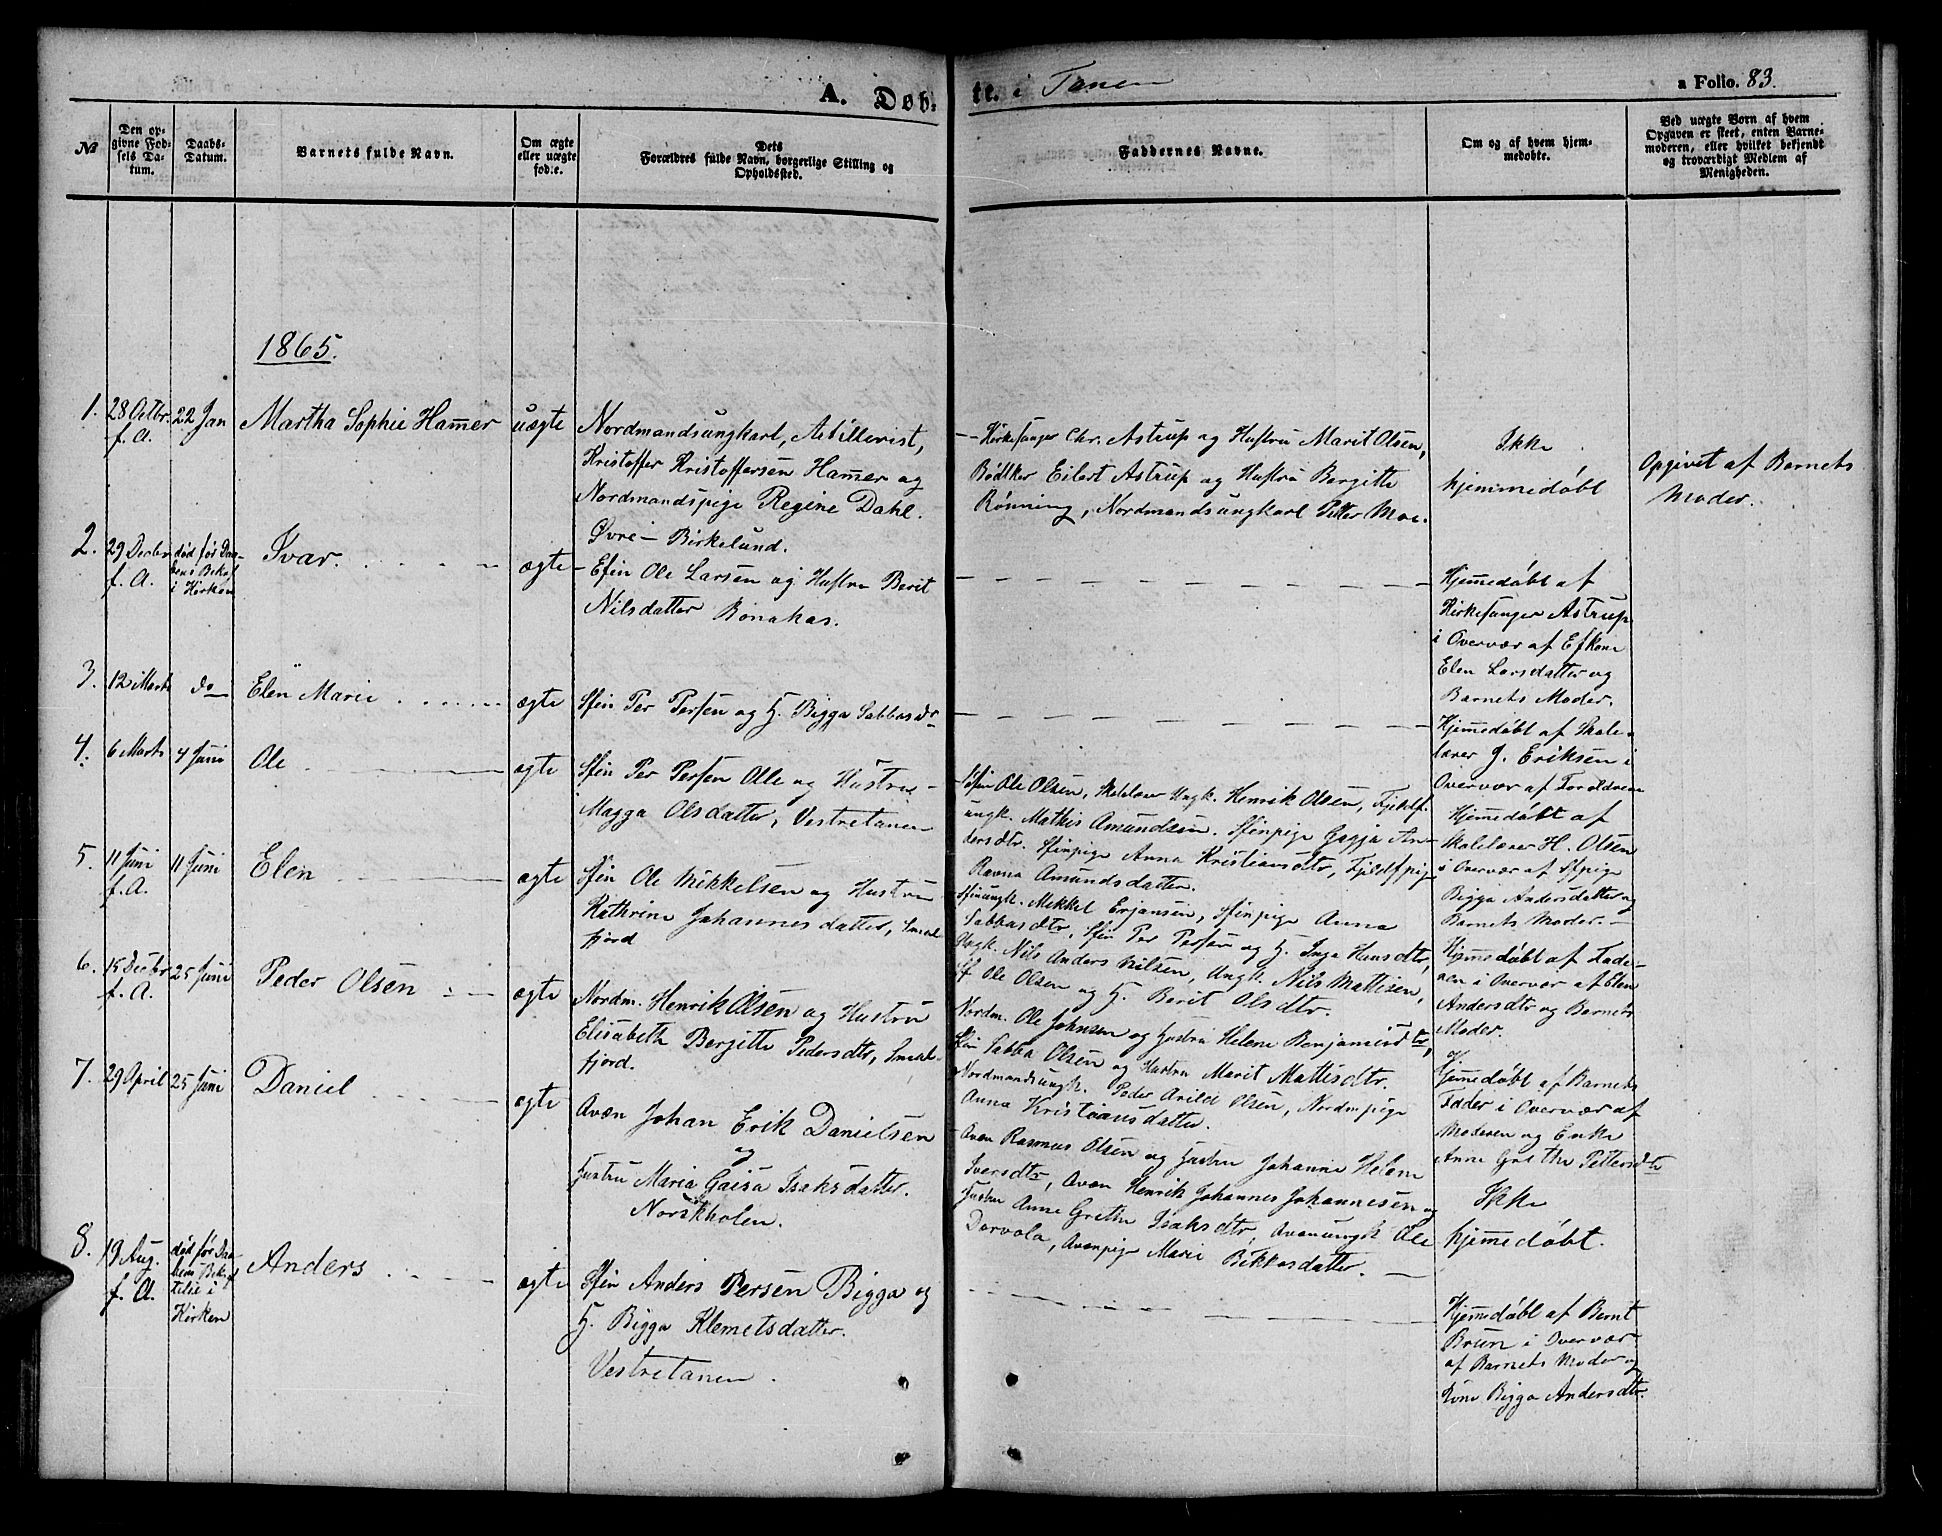 A. Døb-
te. i Tanen
a Folio. 83.
№
Den op-
givne Fød-
sels Da-
tum.
Daabs-
Datum.
Barnets fulde Navn.
Om ægte
eller uægte
fød:e.
Dets
Forældres fulde Navn, borgerlige Stilling og
Opholdssted.
Faddernes Navne.
Om og af hvem hjem-
medøbte.
Ved uægte Børn af hvem
Opgaven er skeet, enten Barne-
moderen, eller hvilket bekjendt
og troværdigt Medlem af
Menigheden.
1865.
1.
28 Octbr.
f. A.
22 Jan
Martha Sophie Hamer
uægte
Nordmandsungkarl, Artillerist,
Kristoffer Kristoffersen Hamer og
Nordmandspige Regine Dahl.
Øvre- Birkelund.
Kirkesanger Chr. Astrup og Hustru Marit Olsen,
Bødtker Eilert Astrup og Hustru Bergitte
Rønning, Nordmandsungkarl Petter Moe.
Ikke
hjemmedøbt
Opgivet af Barnets
Moder.
2.
29 Decbr
f. A.
død før Daa-
bens Bekræf
i Kirken
Ivar.
ægte
Efin Ole Larsen og Hustru Berit
Nilsdatter Bonakas.
Hjemedøbt af
Kirkesanger Astrup
i Overvær af Efkone
Elen Larsdatter og
Barnets Moder.
3.
12 Marts
do
Elen Marie
ægte
Sfin Per Persen og H. Bigga Sabbasdr
Hjemedøbt af Skole-
lærer J. Eriksen i
Overvær af Forældrene
4.
6 Marts
4 Juni
Ole
ægte
Sfin Per Persen Olle og Hustru
Magga Olsdatter, Vestretanen
Sfin Ole Olsen, Skolelærer Ungk. Henrik Olsen, Fjeldf.
ungk. Mathis Amundsen. Sfinpige Gagja An-
dersdtr. Sfinpige Anna Kristiansdtr, Fjeldfpig
Ravna Amundsdatter.
Hjemedøbt af
Skolelærer H. Olsen
i Overvær af Sfpige
Bigga Andersdatter og
Barnets Moder.
5.
11 Juni
f. A.
11 Juni
Elen
ægte
Sfin Ole Mikkelsen og Hustru
Kathrine Johannesdatter, Smal-
fjord
Sfinungk. Mekkel Erjansen, Sfinpige Anna
Sabbasdtr. Sfin Per Persen og H. Inga Hansdtr,
Ungk. Nils Anders Nilsen, Ungk. Nils Mattisen,
Sf. Ole Olsen og H. Berit Olsdtr.
Hjemedøbt af Fade-
ren i Overvær af Elen
Andersdtr og Barnets
Moder.
6.
15 Decbr
f. A.
25 Juni
Peder Olsen
ægte
Nordm. Henrik Olsen og Hustru
Elisabeth Bergitte Pedersdtr, Smal-
fjord.
Nordm. Ole Johnsen og Hustru Helene Benjaminsdtr,
Sfin Sabba Olsen og Hustru Marit Mattisdtr.
Nordmandsungk. Peder Arild Olsen, Nordmpige
Anna Kristiansdatter.
Hjemedøbt af Barnets
Fader i Overvær af
Moderen og Enke
Anne Grethe Pettersdtr
7.
29 April
25 Juni
Daniel
ægte
Qvæn Johan Erik Danielsen
og
Hustru Maria Gaisa Isaksdatter.
Norskholen.
Qvæn Rasmus Olsen og Hustru Johanne Helene
Iversdtr, Qvæn Henrik Johannes Johannesen og
Hustru Anne Grethe Isaksdtr, Qvænungk Ole
Dervola, Qvænpige Marie Bikkasdatter.
Ikke
hjemedøbt.
8.
19 Aug.
f. A.
død før Daa
bens Bekræf
telse i
Kirken
Anders
ægte
Sfin Anders Persen Bigga og
H. Bigga Klemetsdatter.
Vestretanen.
Hjemedøbt af Bernt
Brun i Overvær
af Barnets Moder og
Kone Bigga Andersdtr.